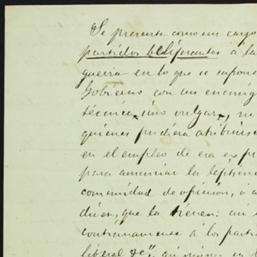 Se presenta como un cargo
partidos beligerantes á la
guerra en lo que se supone
Gobierno con un enemigo
técnica, más vulgar, ni
quienes pudiera atribuirse
en el empleo de esa ex
para anunciar la
comunidad de opinión, ó
dicen, que la tienen: así
contrariamente á los parti
liberal &ª,